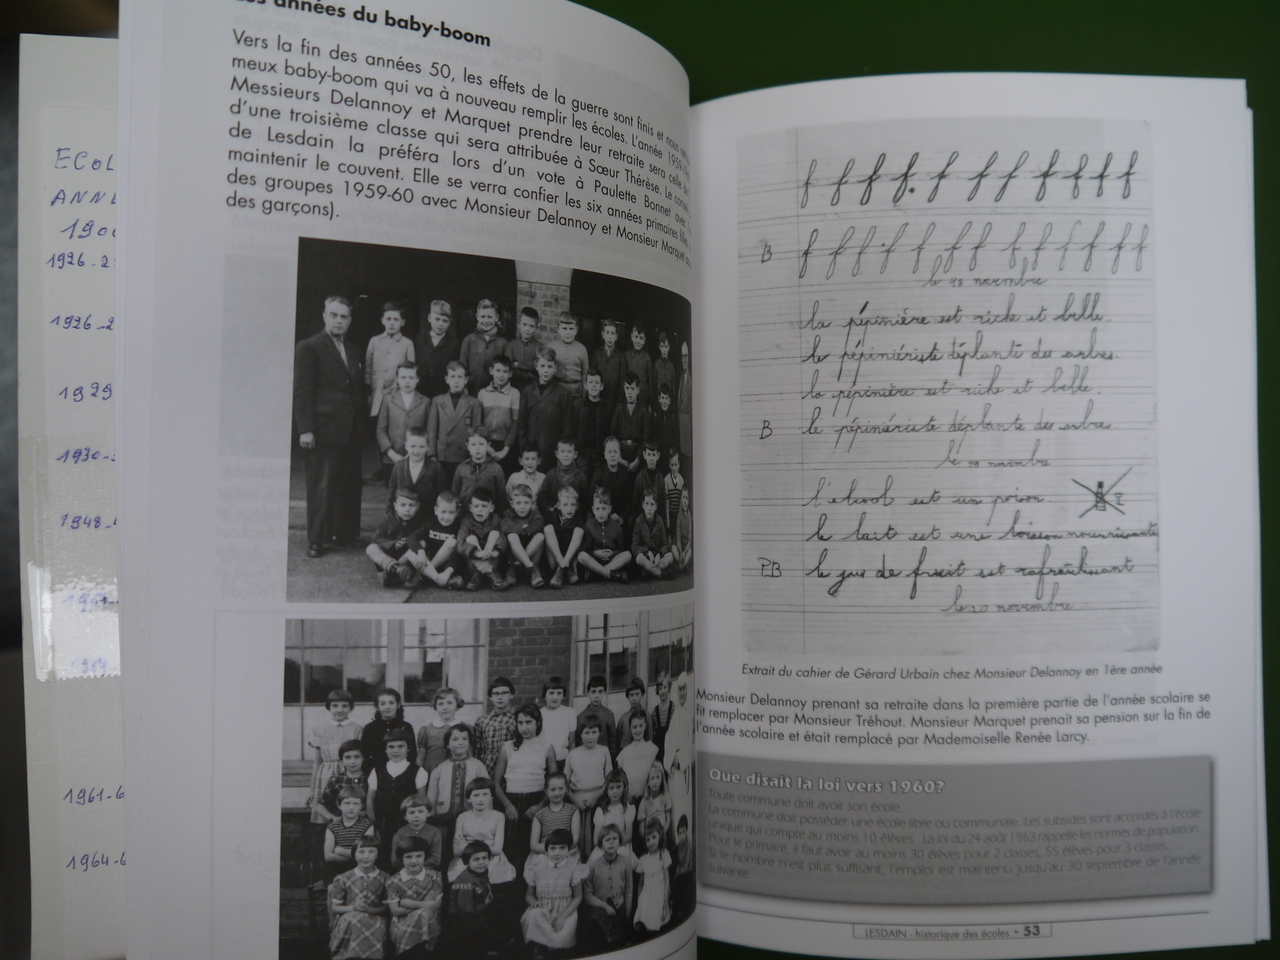 ECOL
ANN
1926-2
1926-2
1929
1930-
1948-
1961-6
1964-6
années du baby-boom
Vers la fin des années 50, les effets de la guerre sont finis et nous
meux baby-boom qui va à nouveau remplir les écoles. L'année 1959-
Messieurs Delannoy et Marquet prendre leur retraite sera celle
d'une troisième classe qui sera attribuée à Sœur Thérèse. Le
de Lesdain la préféra lors d'un vote à Paulette Bonnet avec
maintenir le couvent. Elle se verra confier les six années primaires filles
des groupes 1959-60 avec Monsieur Delannoy et Monsieur Marquet
des garçons).
f f f f f f f f f f f
B f f f f f f f f f f f f
novembre
la pépinière est riche et belle.
le pépiniériste déplante des arbres.
la pépinière est riche et belle.
B le pépiniériste déplante des arbres
le novembre
l'alcool est un poison.
le lait est une boisson nourrissante
PB le jus de fruit est rafraîchissant
le 20 novembre
Extrait du cahier de Gérard Urbain chez Monsieur Delannoy en 1ère année
Monsieur Delannoy prenant sa retraite dans la première partie de l'année scolaire se
fit remplacer par Monsieur Tréhout. Monsieur Marquet prenait sa pension sur la fin de
l'année scolaire et était remplacé par Mademoiselle Renée Larcy.
Que disait la loi vers 1960?
Toute commune doit avoir son école.
La commune doit posséder une école libre ou communale. Les subsides sont accordés à l'école
unique qui compte au moins 10 élèves. La loi du 24 août 1963 rappelle les normes de population.
Pour le primaire, il faut avoir au moins 30 élèves pour 2 classes, 55 élèves pour 3 classes...
Si le nombre n'est plus suffisant, l'emploi est maintenu jusqu'au 30 septembre de l'année
suivante.
LESDAIN - historique des écoles - 53